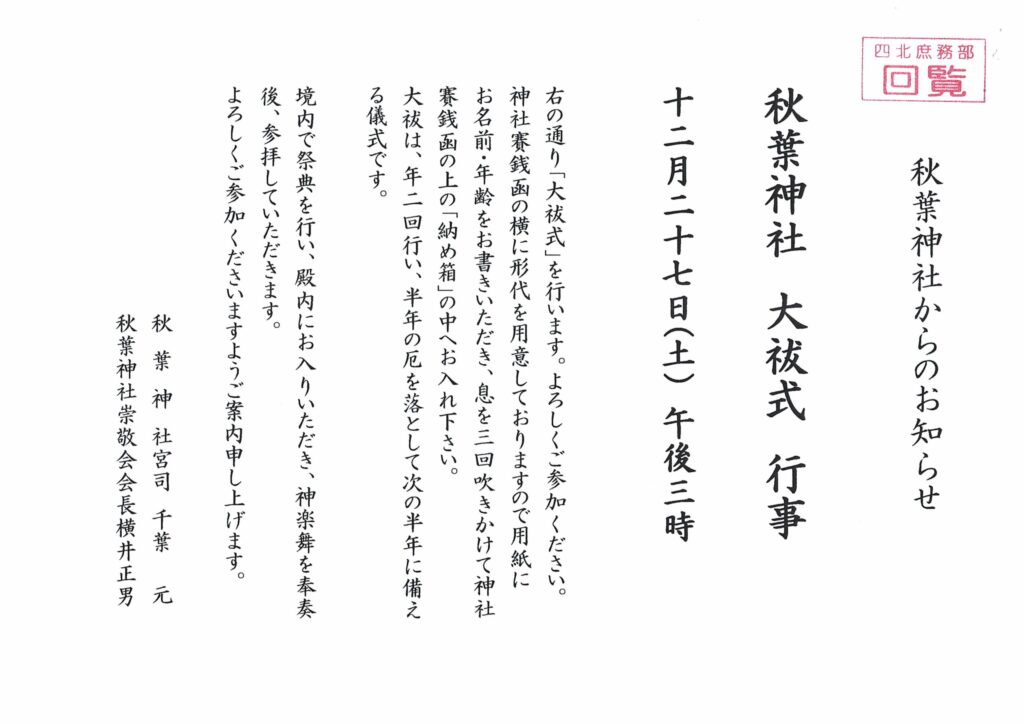 四北庶務部
回覧
秋葉神社からのお知らせ
秋葉神社 大祓式 行事
十二月二十七日(土) 午後三時
右の通り「大祓式」を行います。よろしくご参加ください。
神社賽銭函の横に形代を用意しておりますので用紙に
お名前・年齢をお書きいただき、息を三回吹きかけて神社
賽銭函の上の「納め箱」の中へお入れ下さい。
大祓は、年二回行い、半年の厄を落として次の半年に備え
る儀式です。
境内で祭典を行い、殿内にお入りいただき、神楽舞を奉奏
後、参拝していただきます。
よろしくご参加くださいますようご案内申し上げます。
秋葉神社宮司 千葉 元
秋葉神社崇敬会会長横井正男